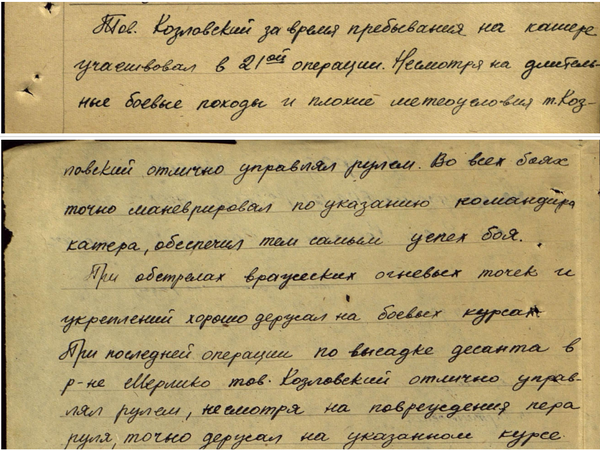 Тов. Козловский за время пребывания на катере
участвовал в 21ой операции. Несмотря на длитель-
ные боевые походы и плохие метеоусловия т. Коз-
ловский отлично управлял рулем. Во всех боях
точно маневрировал по указанию командира
катера, обеспечил тем самым успех боя.
При обстрелах вражеских огневых точек и
укреплений хорошо держал на боевых курсах
При последней операции по высадке десанта в
р-не Мерлико тов. Козловский отлично управ-
лял рулем, несмотря на повреждения пера
руля, точно держал на указанном курсе.